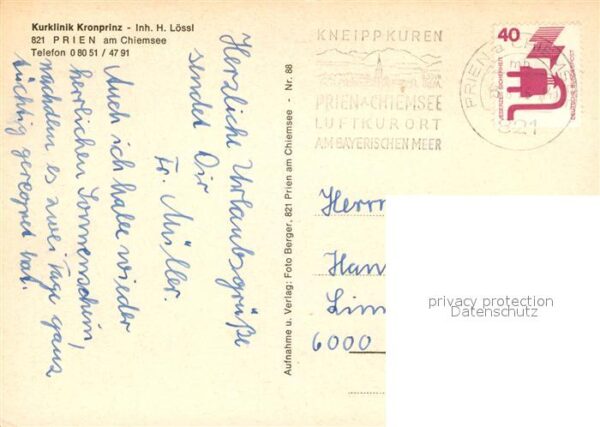 Kurklinik Kronprinz - Inh. H. Lössl
821 PRIEN am Chiemsee
Telefon 0 80 51 / 47 91
Herzliche Urlaubsgrüße
sendet Dir
Fr. Müller.
Auch ich habe wieder
herrlichen Sonnenschein,
nachdem es zwei Tage ganz
tüchtig geregnet hat.
Aufnahme u. Verlag: Foto Berger, 821 Prien am Chiemsee - Nr. 88
KNEIPPKUREN
PRIEN A CHIEMSEE
LUFTKURORT
AM BAYERISCHEN MEER
PRIEN a CHIEMSEE
821
40
JEDERZEIT SICHERHEIT
DEUTSCHE BUNDESPOST
Herrn
Han
Lim
6000
privacy protection
Datenschutz